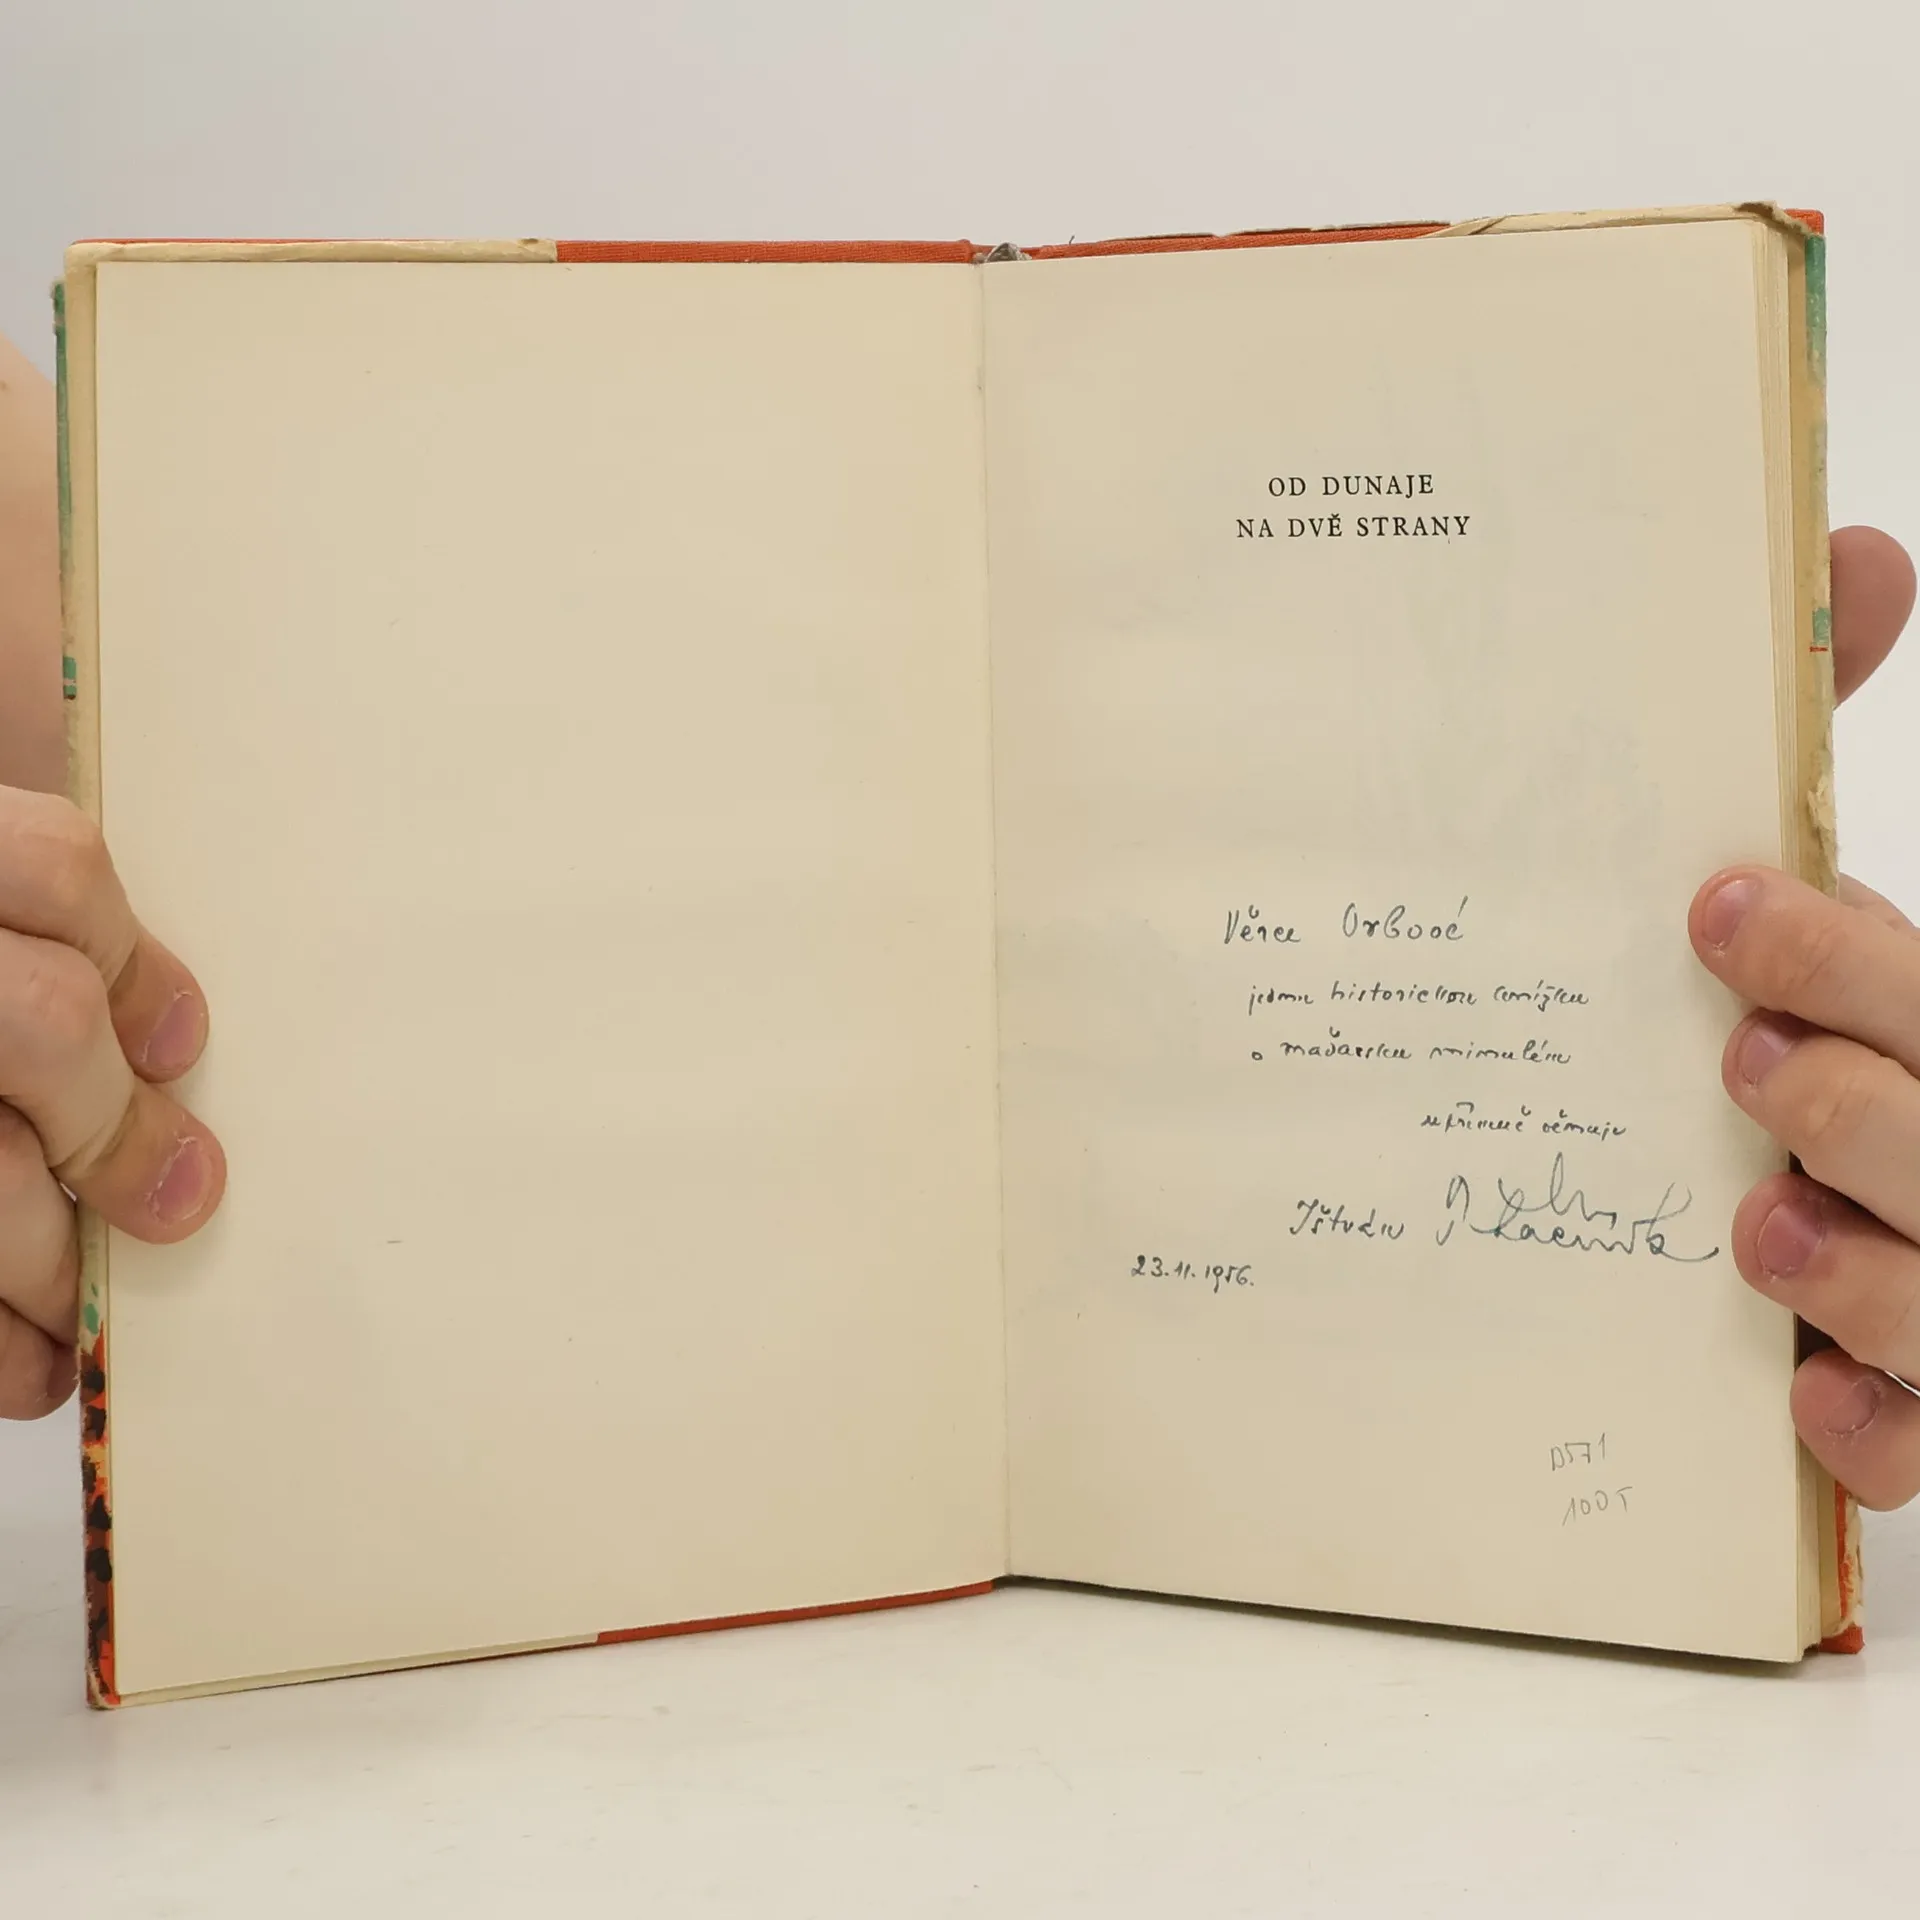 OD DUNAJE
NA DVĚ STRANY
Věrce Vrbové
jednu historickou knížku
o maďarsku minulém
upřímně věnuje
Ištván
23. 11. 1956.
D571
100T